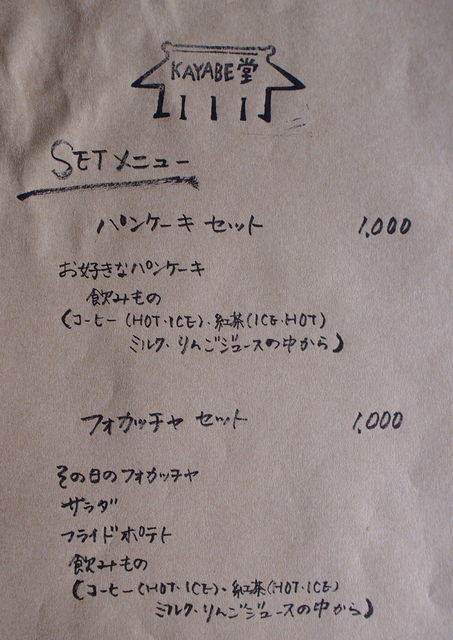 KAYABE堂
SETメニュー
パンケーキセット 1,000
お好きなパンケーキ
飲みもの
(コーヒー(HOT・ICE)・紅茶(ICE・HOT)
ミルク・りんごジュースの中から)
フォカッチャセット 1,000
その日のフォカッチャ
サラダ
フライドポテト
飲みもの
(コーヒー(HOT・ICE)・紅茶(HOT・ICE)
ミルク・りんごジュースの中から)